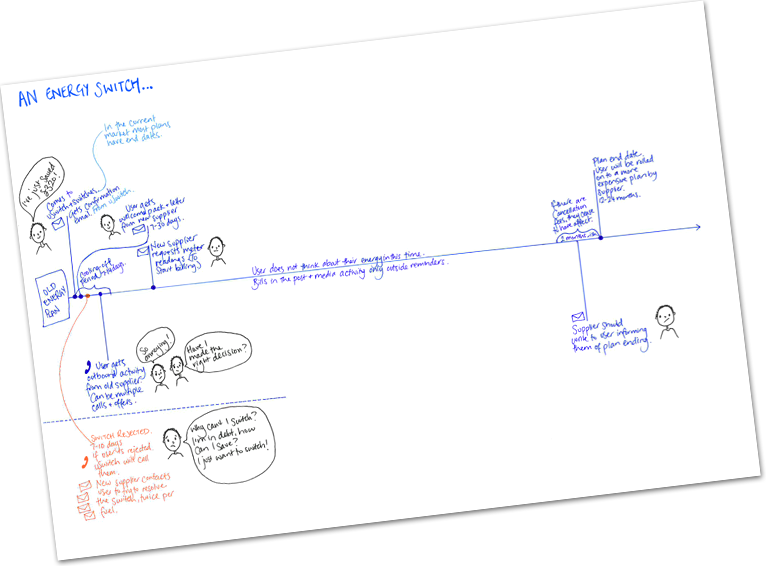 AN ENERGY SWITCH...
In the current
market most plans
have end dates.
I've just saved
£320!
Comes to
uSwitch + switches.
Gets confirmation
email from uSwitch.
User gets
welcome pack + letter
from new supplier
7-30 days.
Cooling off
period 14 days.
New Supplier
requests meter
readings (to
start billing)
OLD
ENERGY
PLAN
User does not think about their energy in this time.
Bills in the post + media activity only outside reminders.
If there are
cancellation
fees, they cease
to have effect.
2 months
Plan end date.
User will be rolled
on to a more
expensive plan by
supplier.
12-24 months.
Supplier should
write to user informing
them of plan ending.
User gets
outbound activity
from old supplier
Can be multiple
calls + offers.
So
annoying!
Have I
made the
right decision?
Switch Rejected.
7-10 days
if user is rejected
uSwitch will call
them.
New supplier contacts
user to try to resolve
the switch, twice per
fuel.
Why can't I switch?
I'm in debt, how
can I save?
I just want to switch!